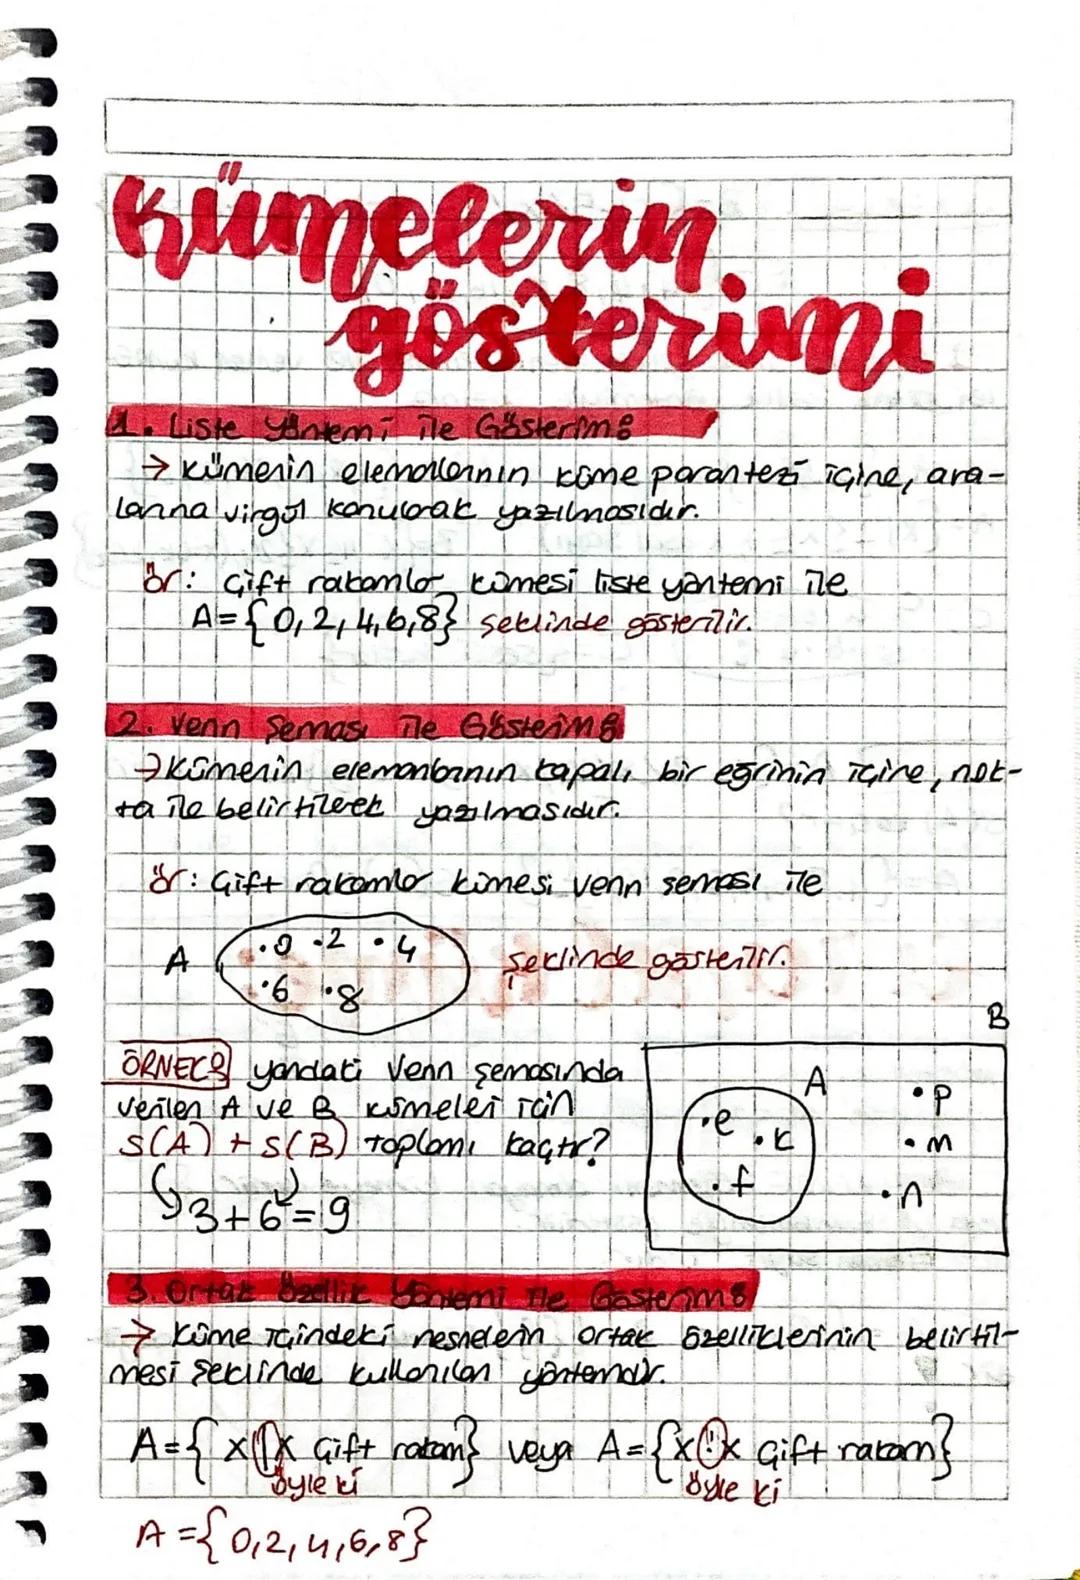 Kümelerin
gösterimi
1. Liste Yöntemi ile Gösterim:
→ Kümenin elemanlarının küme parantezi içine, ara-
larına virgül konularak yazılmasıdır.
ör: Çift rakamlar kümesi liste yöntemi ile
A={0,2,4,6,8} şeklinde gösterilir.
2. Venn Şeması ile Gösterim:
→ Kümenin elemanlarının kapalı bir eğrinin içine, nok-
ta ile belirtilerek yazılmasıdır.
ör: Çift rakamlar kümesi venn şeması ile
A .0 .2 .4 şeklinde gösterilir.
.6 .8
B
ÖRNEK: yandaki Venn şemasında
verilen A ve B kümeleri için
s(A) + s(B) toplamı kaçtır?
3+6=9
A
.e .k .f
.p
.m
.n
3. Ortak Özellik Yöntemi ile Gösterim:
→ Küme içindeki nesnelerin ortak özelliklerinin belirtil-
mesi şeklinde kullanılan yöntemdir.
A={x|x Çift rakam} veya A={x:x Çift rakam}
öyle ki öyle ki
A={0,2,4,6,8}